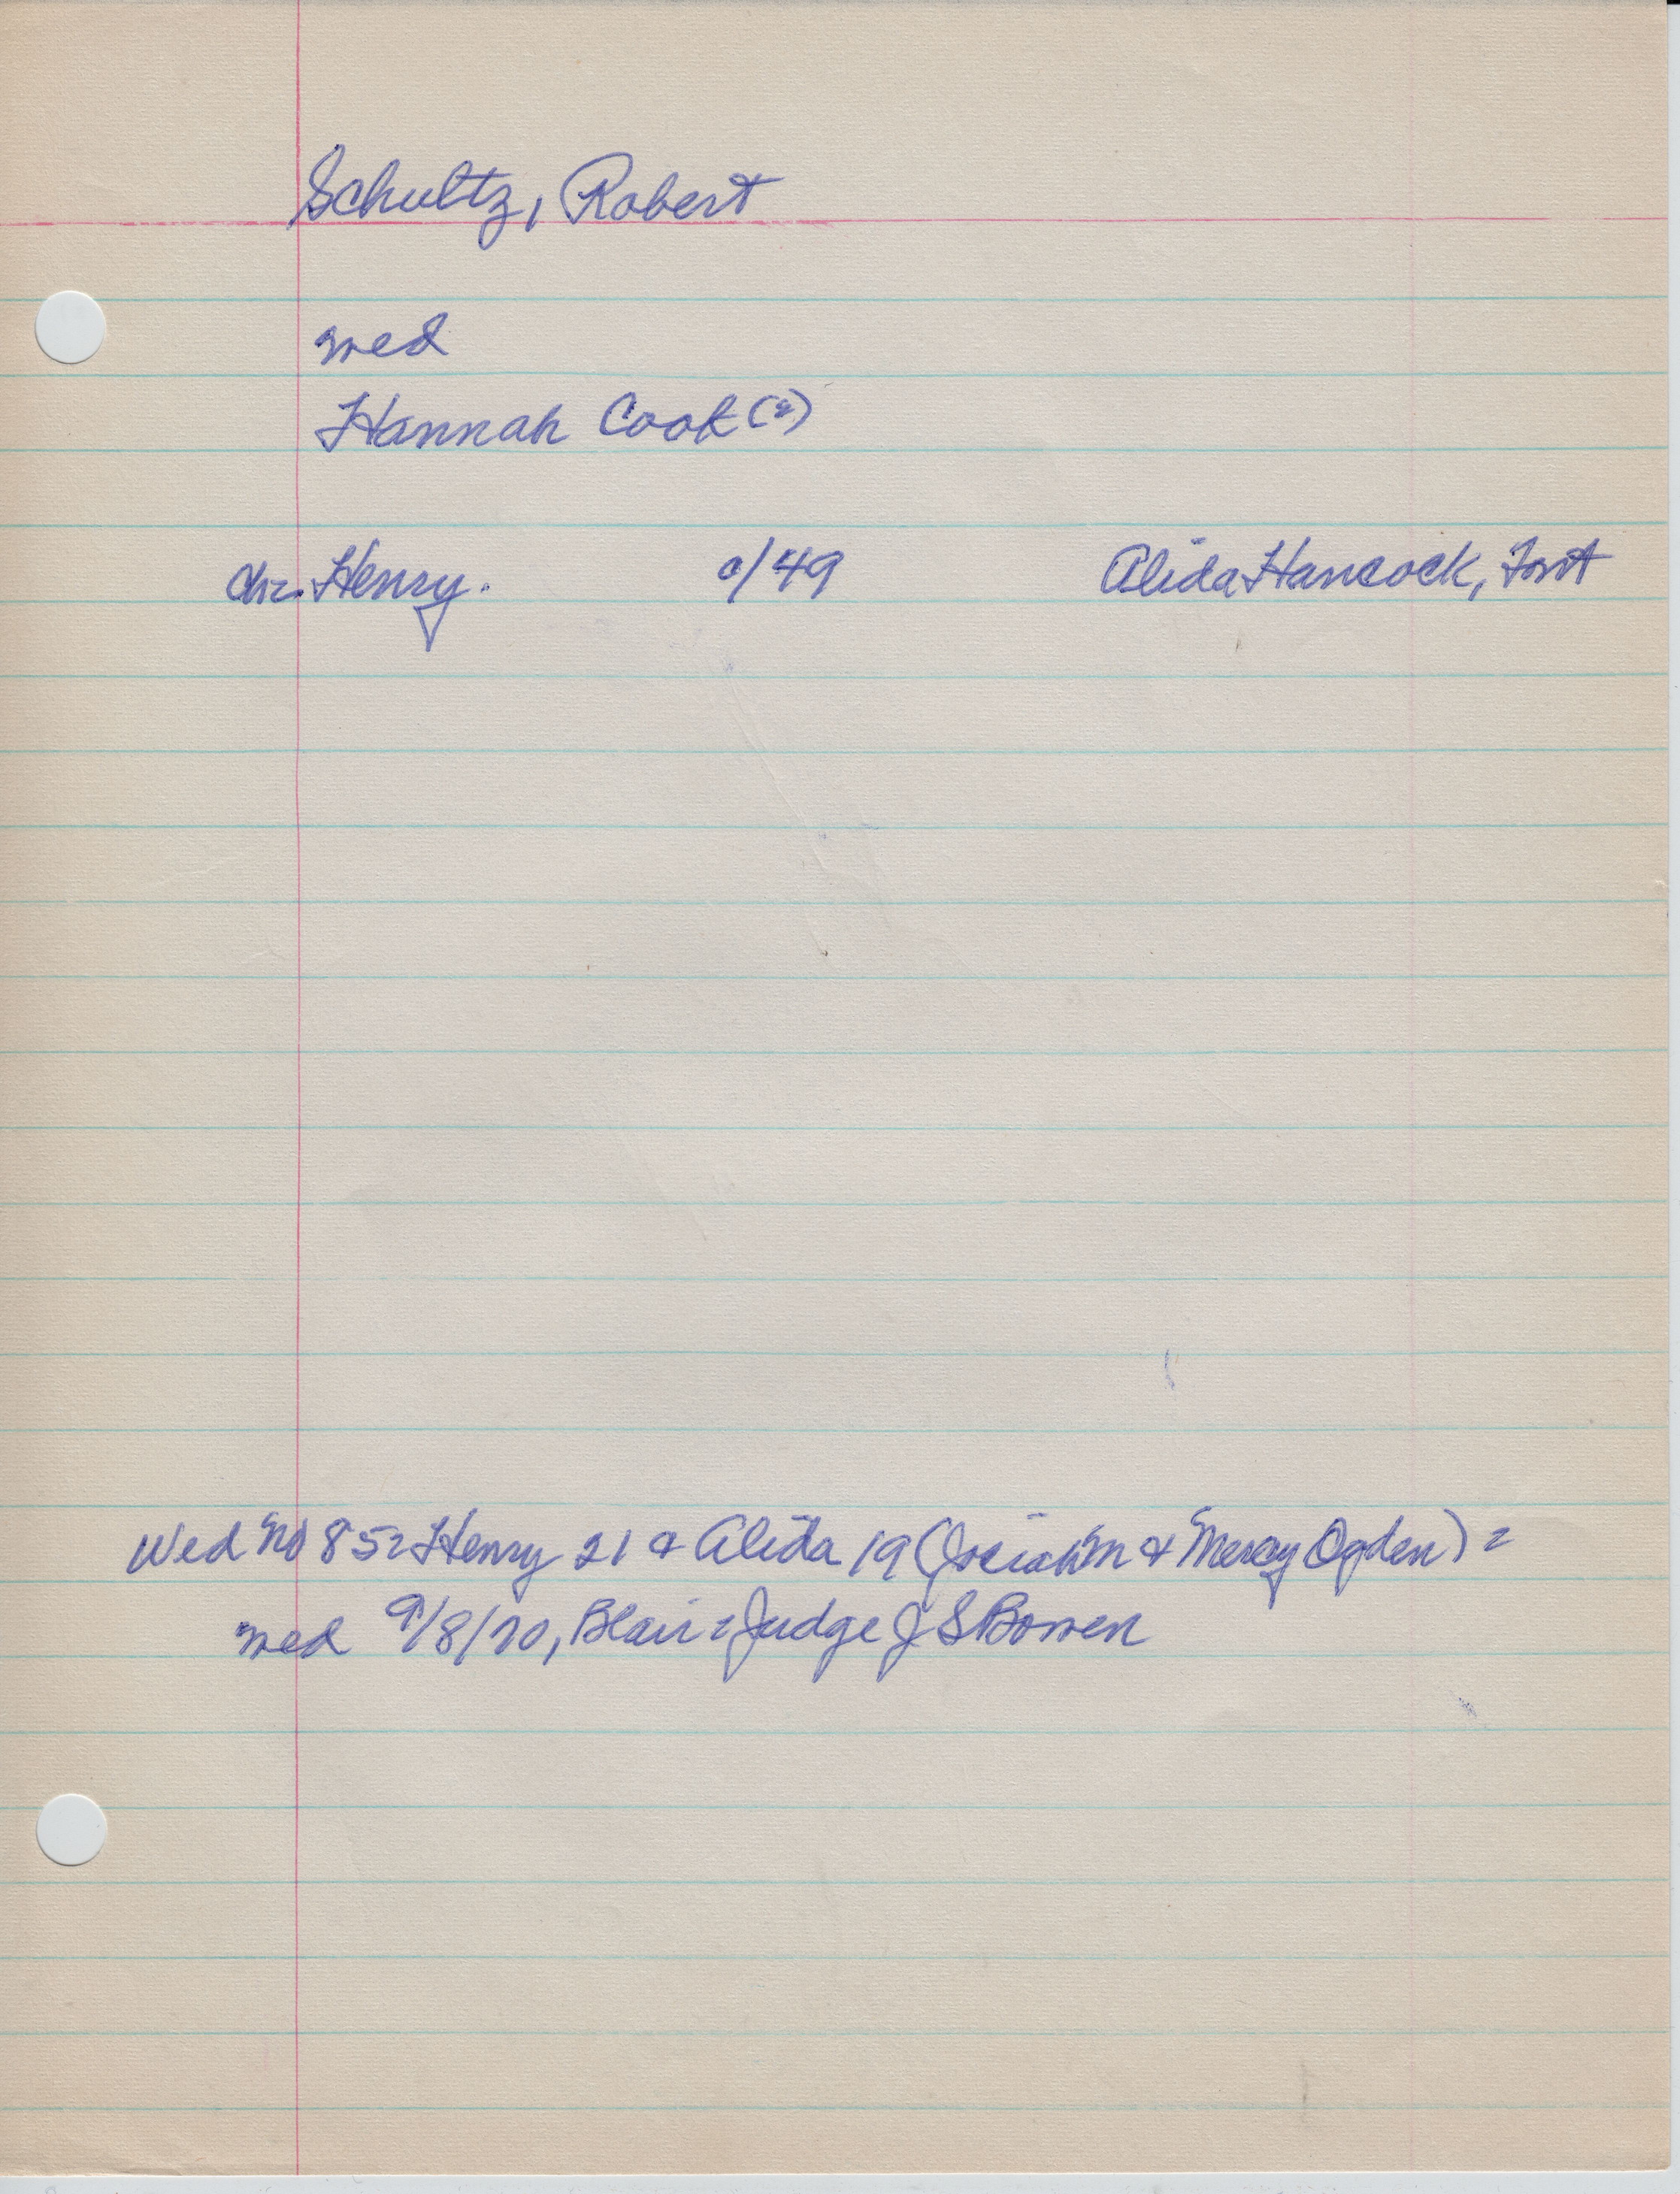 Schultz, Robert
med
Hannah Cook (?)
chr. Henry. c/49 Alida Hancock, Font
Wed No 852 Henry 21 & Alida 19 (Josiah Wm & Mercy Ogden) =
med 9/8/70, Blair = Judge J S Bowen